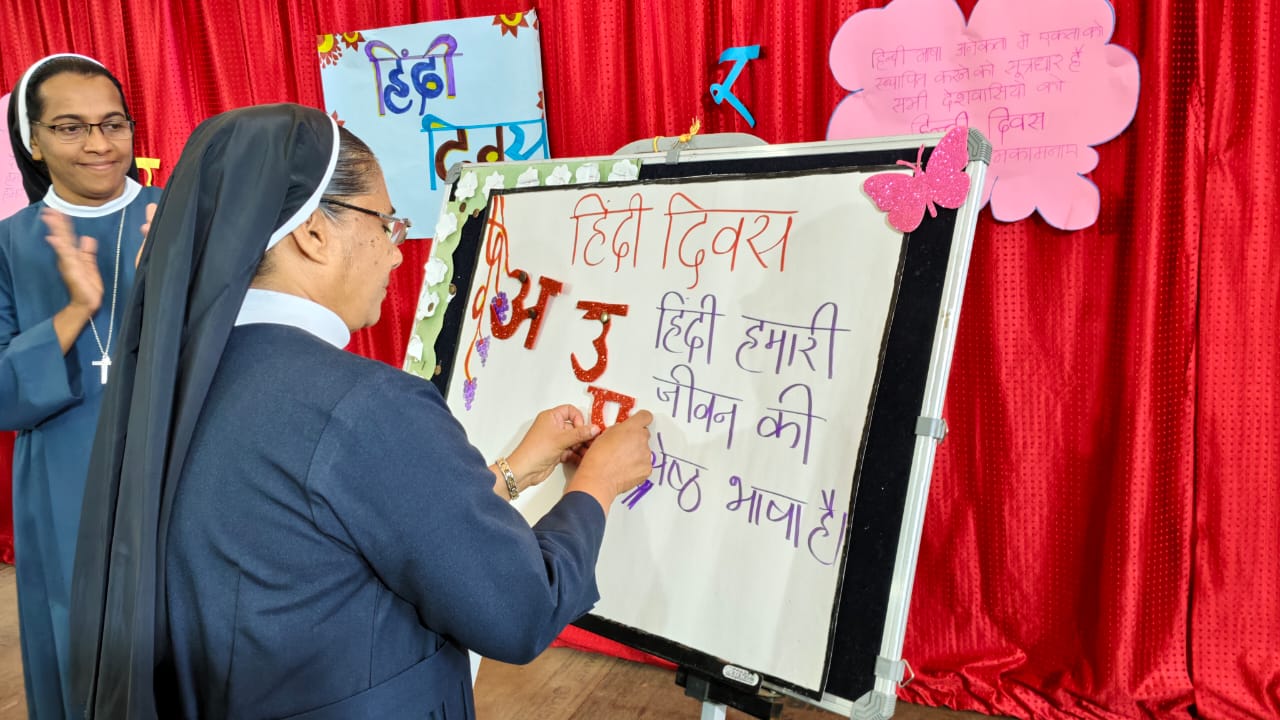 हिंदी
दिवस
र
हिन्दी भाषा अनेकता में एकता को
स्थापित करने की सूत्रधार है
सभी देशवासियों को
हिन्दी दिवस
हिंदी दिवस
अ
उ
हिंदी हमारी
जीवन की
श्रेष्ठ भाषा है।